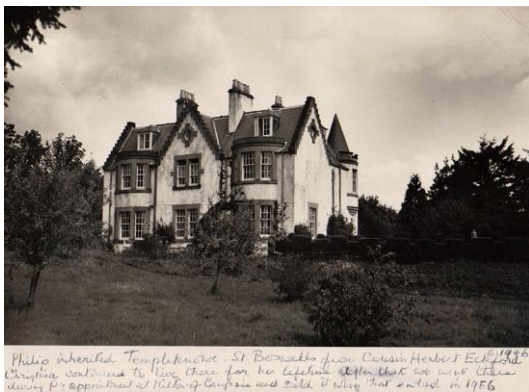 Philip inherited Templeknowe. St Boswells from Cousin Herbert Eckford
Christina continued to live there for her lifetime after that we went there
during P's appointment at Milton of Campsie and sold it when that ended in 1986